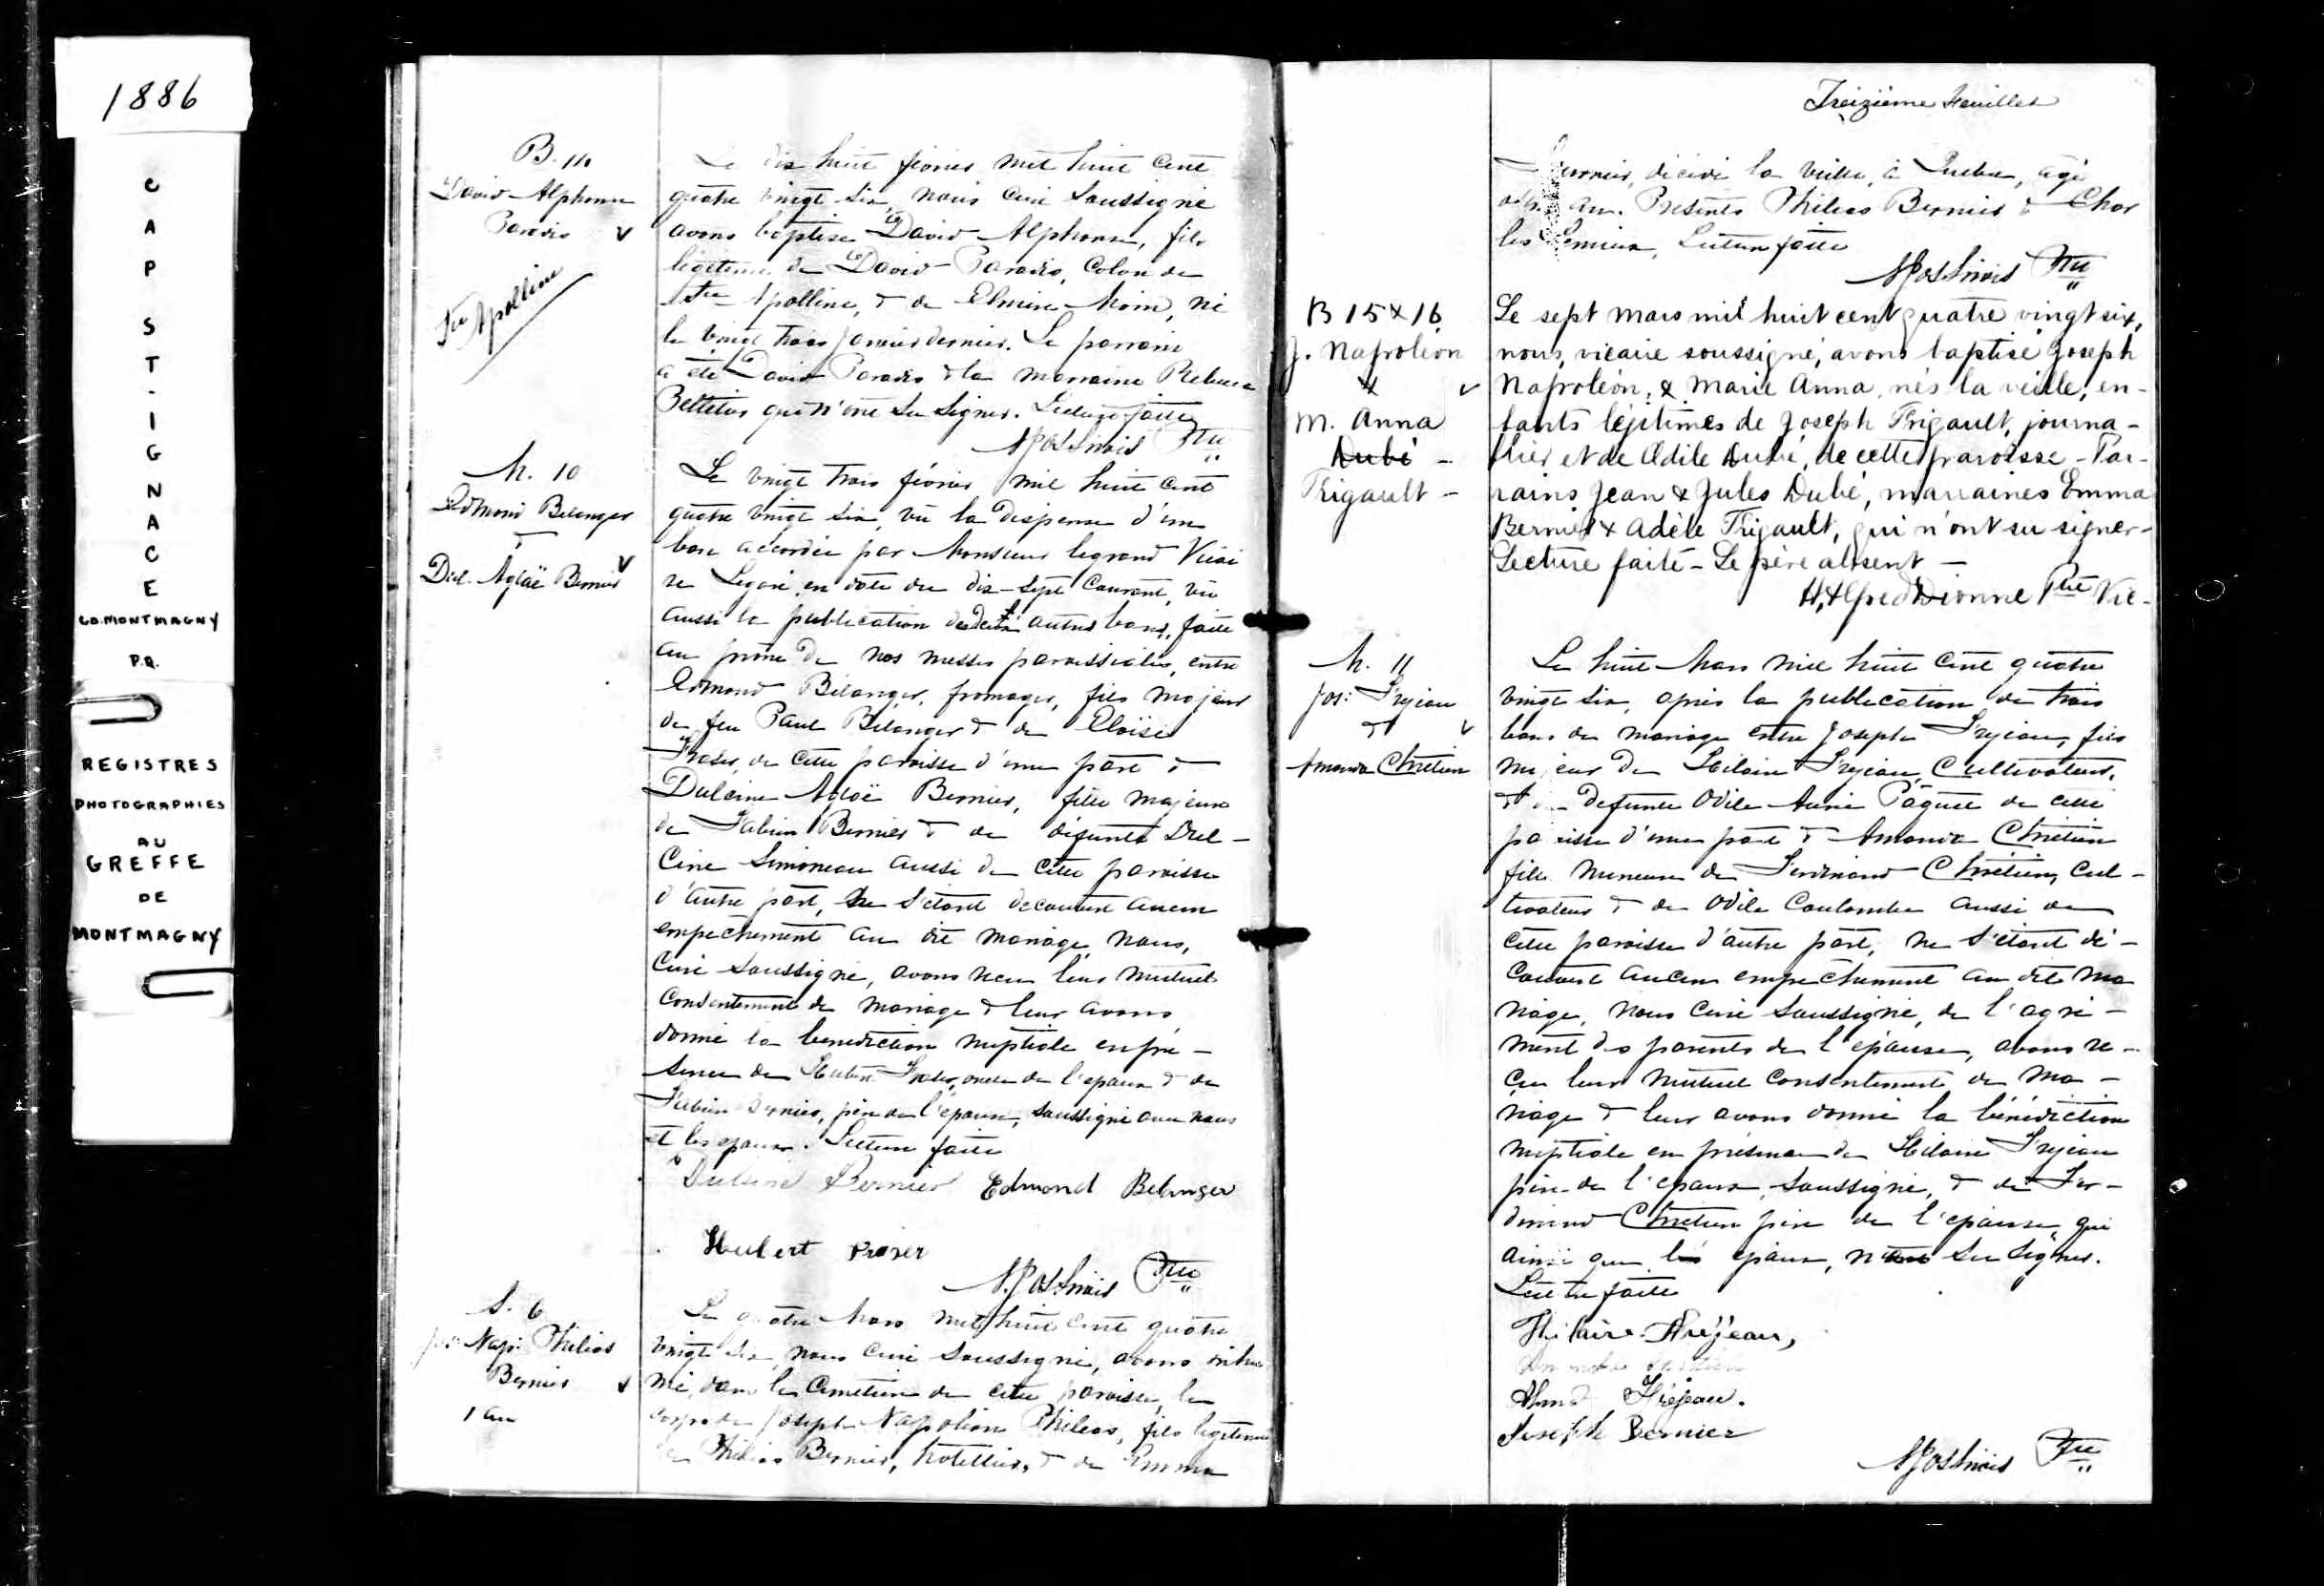 1886
CAP ST-IGNACE
CO. MONTMAGNY
P.Q.
REGISTRES
PHOTOGRAPHIES
AU
GREFFE
DE
MONTMAGNY
B. 14
David-Alphonse
Paradis
Ste Apolline
Le dix huit février mil huit cent
quatre vingt six, nous curé soussigné
avons baptisé David Alphonse, fils
légitime de David Paradis, colon de
Ste Apolline, & de Elmire Morin, né
le vingt trois janvier dernier. Le parrain
a été David Paradis & la marraine
qui n'ont su signer. Lecture faite
Ptre
M. 10
Edmond Belanger
&
Dul. Aglaë Bernier
Le vingt trois février mil huit cent
quatre vingt six, vu la dispense d'un
ban accordée par Monsieur le grand Vicai
re Legaré en date du dix-sept courant, vu
aussi la publication des deux autres bans, faite
au prône de nos messes paroissiales, entre
Edmond Bélanger, fromager, fils majeur
de feu Paul Bélanger & de Eloïse
Fraser, de cette paroisse d'une part &
Dulcine Aglaë Bernier, fille majeure
de Fabien Bernier & de défunte Dul-
cine Simoneau aussi de cette paroisse
d'autre part, ne s'étant découvert aucun
empêchement au dit mariage, nous,
curé soussigné, avons reçu leur mutuel
consentement de mariage & leur avons
donné la bénédiction nuptiale en pré-
sence de Hubert Fraser, oncle de l'époux & de
Fabien Bernier, père de l'épouse, soussigné avec nous
et les époux. Lecture faite
Dulcine Bernier Edmond Belanger
Hubert Fraser
Ptre
S. 6
Jos: Nap: Philéas
Bernier
1 an
Le quatre Mars mil huit cent quatre
vingt six, nous curé soussigné, avons inhu
mé, dans le cimetière de cette paroisse, le
corps de Joseph Napoléon Philéas, fils légitime
de Philéas Bernier, hotellier, & de Emma
Treizième feuillet
Fournier, décédé la veille, à Québec, agé
an. Présents Philéas Bernier & Char
les Lemieux, Lecture faite
Ptre
B 15 & 16
J. Napoléon
&
M. Anna
Dubé -
Frigault -
Le sept mars mil huit cent quatre vingt six,
nous, vicaire soussigné, avons baptisé Joseph
Napoléon, & Marie Anna, nés la veille, en-
fants légitimes de Joseph Frigault, journa-
lier et de Odile Dubé, de cette paroisse - Par-
rains Jean & Jules Dubé, marraines Emma
Bernier & Adèle Frigault, qui n'ont su signer -
Lecture faite - Le père absent -
H. Alfred Dionne Ptre Vic -
M. 11
Jos: Frejeau
&
Amanda Chrétien
Le huit Mars mil huit cent quatre
vingt six, après la publication de trois
bans de mariage entre Joseph Frejeau, fils
majeur de Hilaire Frejeau, cultivateur,
& de défunte Odile Aurie Paquet de cette
paroisse d'une part & Amanda Chrétien
fille mineure de Ferdinand Chrétien, cul-
tivateur & de Odile Coulombe aussi de
cette paroisse d'autre part, ne s'étant dé-
couvert aucun empêchement au dit ma
riage, nous curé soussigné, de l'agré-
ment des parents de l'épouse, avons re-
çu leur mutuel consentement de ma-
riage & leur avons donné la bénédiction
nuptiale en présence de Hilaire Frejeau
père de l'époux, soussigné, & de Fer-
dinand Chrétien père de l'épouse qui
ainsi que les époux, n'ont su signer.
Lecture faite
Hilaire Fréjeau,
Fréjeau.
Joseph Bernier
Ptre